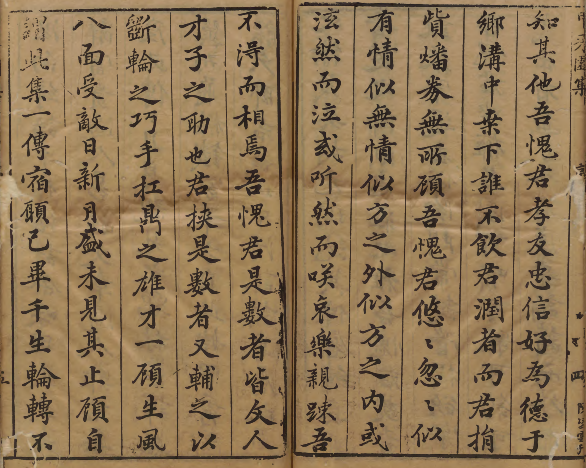 知其他吾愧君孝友忠信好為德于
鄉溝中乗下誰不飲君潤者而君捐
貲燔券無所顧吾愧君悠〻忽〻似
有情似無情似方之外似方之内或
泫然而泣或听然而咲哀樂親踈吾
不淂而相焉吾愧君是數者皆文人
才子之助也君挾是數者又輔之以
斲輪之巧手扛鼎之雄才一顧生風
八面受敵日新月盛未見其止顧自
謂此集一傳宿願已畢千生輪轉不